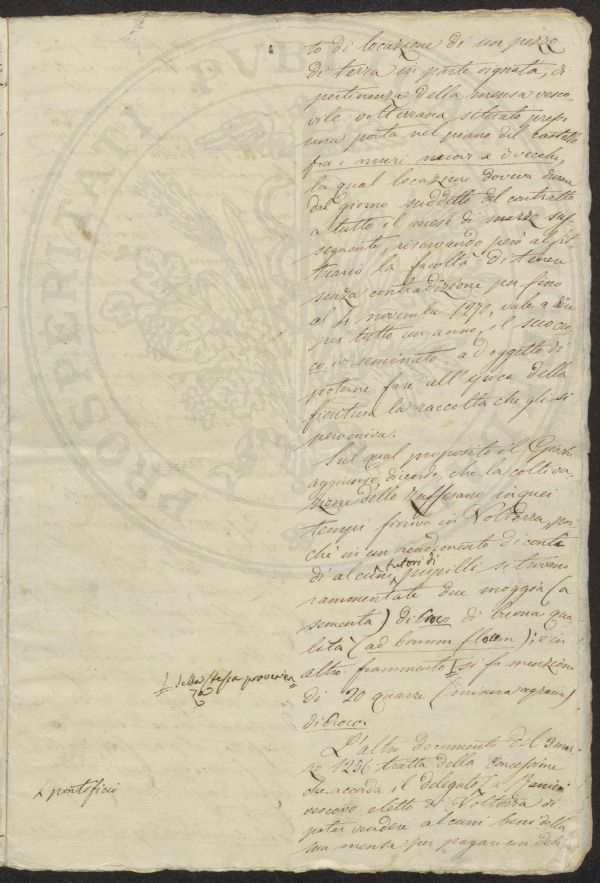 to di locazione di un pezzo
di terra in parte vignata, di
pertinenza della mensa vesco-
vile volterrana situato press
una porta nel piano del castello
fra i muri nuovi e i vecchi,
la qual locazione doveva durare
dal giorno suddetto del contratto
a tutto il mese di marzo sus-
seguente, riservando però al fit-
tuario la facoltà di tenere
senza contradizione per fino
al 4 novembre 1270, vale a dire
per tutto un anno, il suo cro-
co ivi seminato, ad oggetto di
poterne fare all'epoca della
fioritura la raccolta che gli si
perveniva.
Sul qual proposito il
aggiunse, dicendo, che la coltiva-
zione dello Zafferano in quei
tempi fioriva in Volterra, poi
chè in un rendimento di conti
di alcuni ^ tutori di pupilli si trovano
rammentate due moggia (a
sementa) di Croco di buona qua-
lità (ad bonum florem); e in
altro frammento si fa menzione
di 20 quarre (misura agraria)
di Croco.
della stessa provenienza
L'altro documento del 3 mar-
zo 1256 tratta della concessione
che accorda il delegato ^ a Ranieri
vescovo eletto di Volterra di
poter vendere alcuni beni della
sua mensa per pagare un debi
^ pontificio
PROPRIETA
PVBLIC